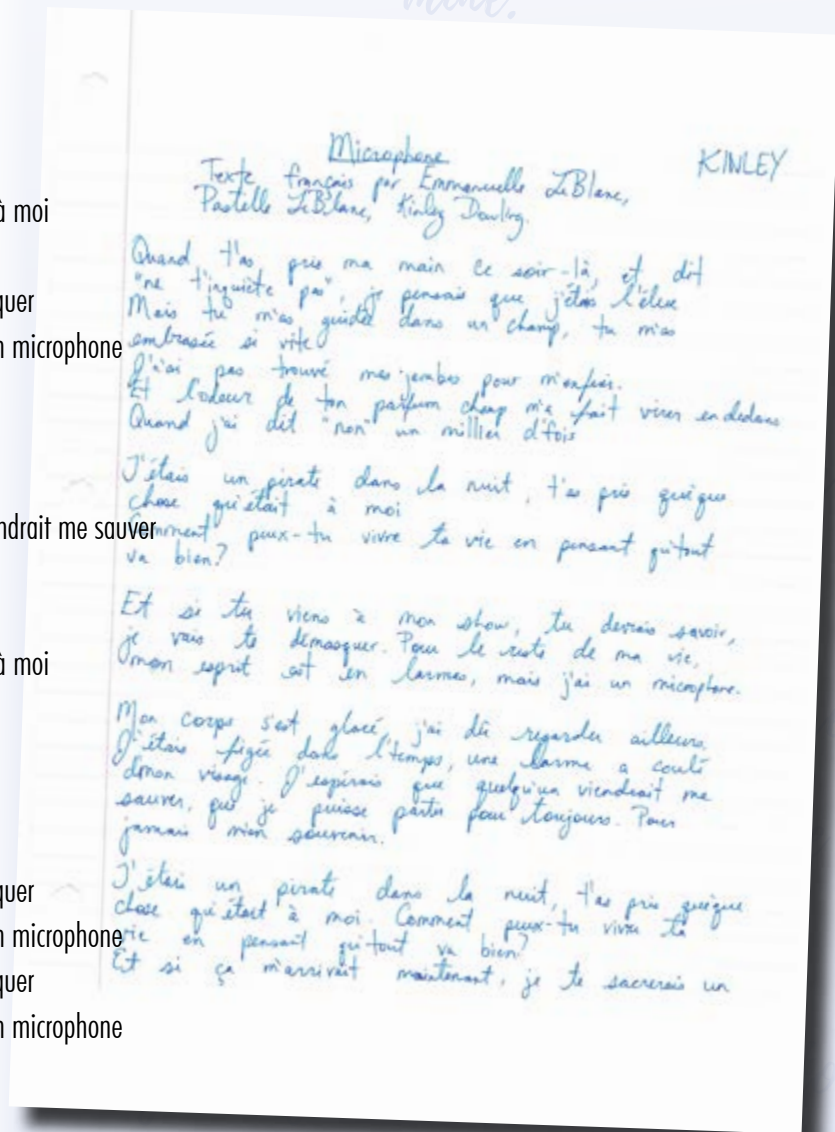 mine.
à moi
quer
n microphone
ndrait me sauver
à moi
quer
n microphone
quer
n microphone
Microphone
KINLEY
Texte français par Emmanuelle LeBlanc,
Pastelle LeBlanc, Kinley Dowling.
Quand t'as pris ma main ce soir-là, et dit
"ne t'inquiète pas", je pensais que j'étais l'élue
Mais tu m'as guidée dans un champ, tu m'as
embrasée si vite
J'n'ai pas trouvé mes jambes pour m'enfuir.
Et l'odeur de ton parfum cheap m'a fait virer en dedans
Quand j'ai dit "non" un millier d'fois
J'étais un pirate dans la nuit, t'as pris queique
chose qu'était à moi
Comment peux-tu vivre ta vie en pensant qu'tout
va bien?
Et si tu viens à mon show, tu devrais savoir,
je vais te démasquer. Pour le reste de ma vie,
mon esprit est en larmes, mais j'ai un microphone.
Mon corps s'est glacé, j'ai dû regarder ailleurs.
J'étais figée dans l'temps, une larme a coulé
dmon visage. J'espérais que quelqu'un viendrait me
sauver, que je puisse partir pour toujours. Pour
jamais m'en souvenir.
J'étais un pirate dans la nuit, t'as pris queique
chose qu'était à moi. Comment peux-tu vivre ta
vie en pensant qu'tout va bien?
Et si ça m'arrivait maintenant, je te sacrerais un